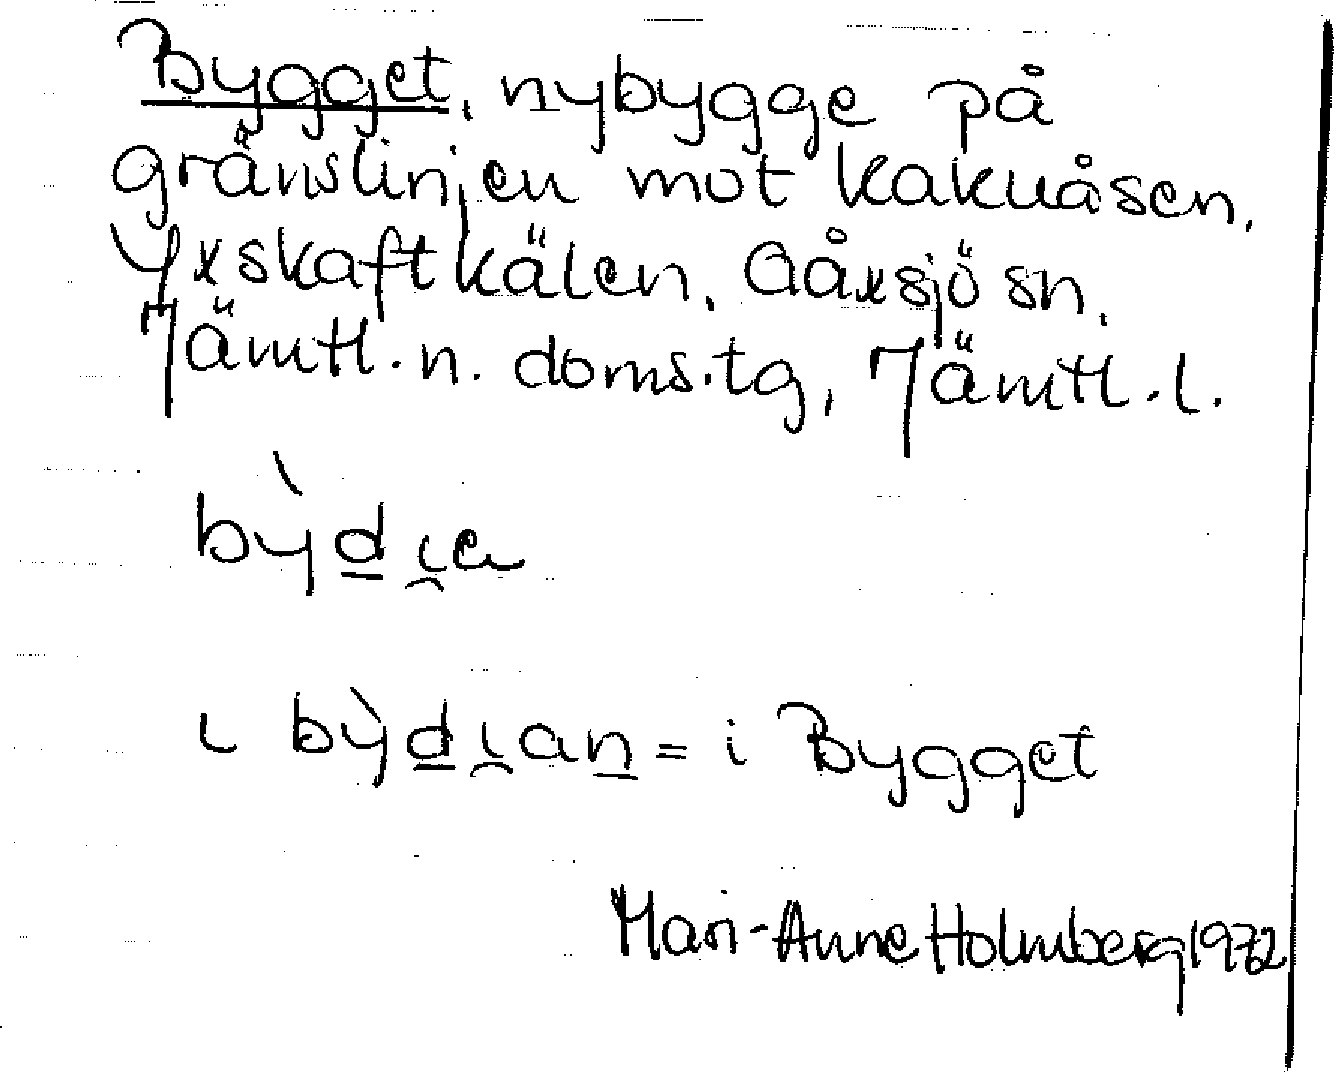 Bygget, nybygge på
gränslinjen mot Kakuåsen,
Yxskaftkälen, Gåxsjö sn,
Jämtl. n. doms.tg, Jämtl. l.
bỳd̲i̯a
ι bỳd̲i̯an̲ = i Bygget
Mari-Anne Holmberg 1972